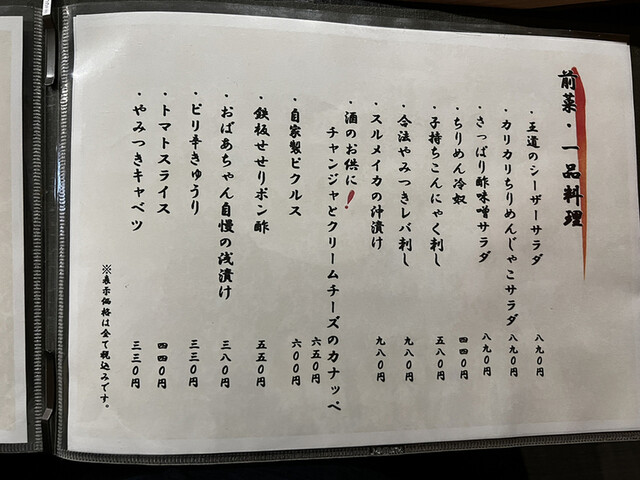 前菜・一品料理
・王道のシーザーサラダ 八九〇円
・カリカリちりめんじゃこサラダ 八九〇円
・さっぱり酢味噌サラダ 八九〇円
・ちりめん冷奴 四四〇円
・子持ちこんにゃく刺し 五八〇円
・合法やみつきレバ刺し 九八〇円
・スルメイカの沖漬け 九八〇円
・酒のお供に!
チャンジャとクリームチーズのカナッペ 六五〇円
・自家製ピクルス 六〇〇円
・鉄板せせりポン酢 五五〇円
・おばあちゃん自慢の浅漬け 三八〇円
・ピリ辛きゅうり 三三〇円
・トマトスライス 四四〇円
・やみつきキャベツ 三三〇円
※表示価格は全て税込みです。